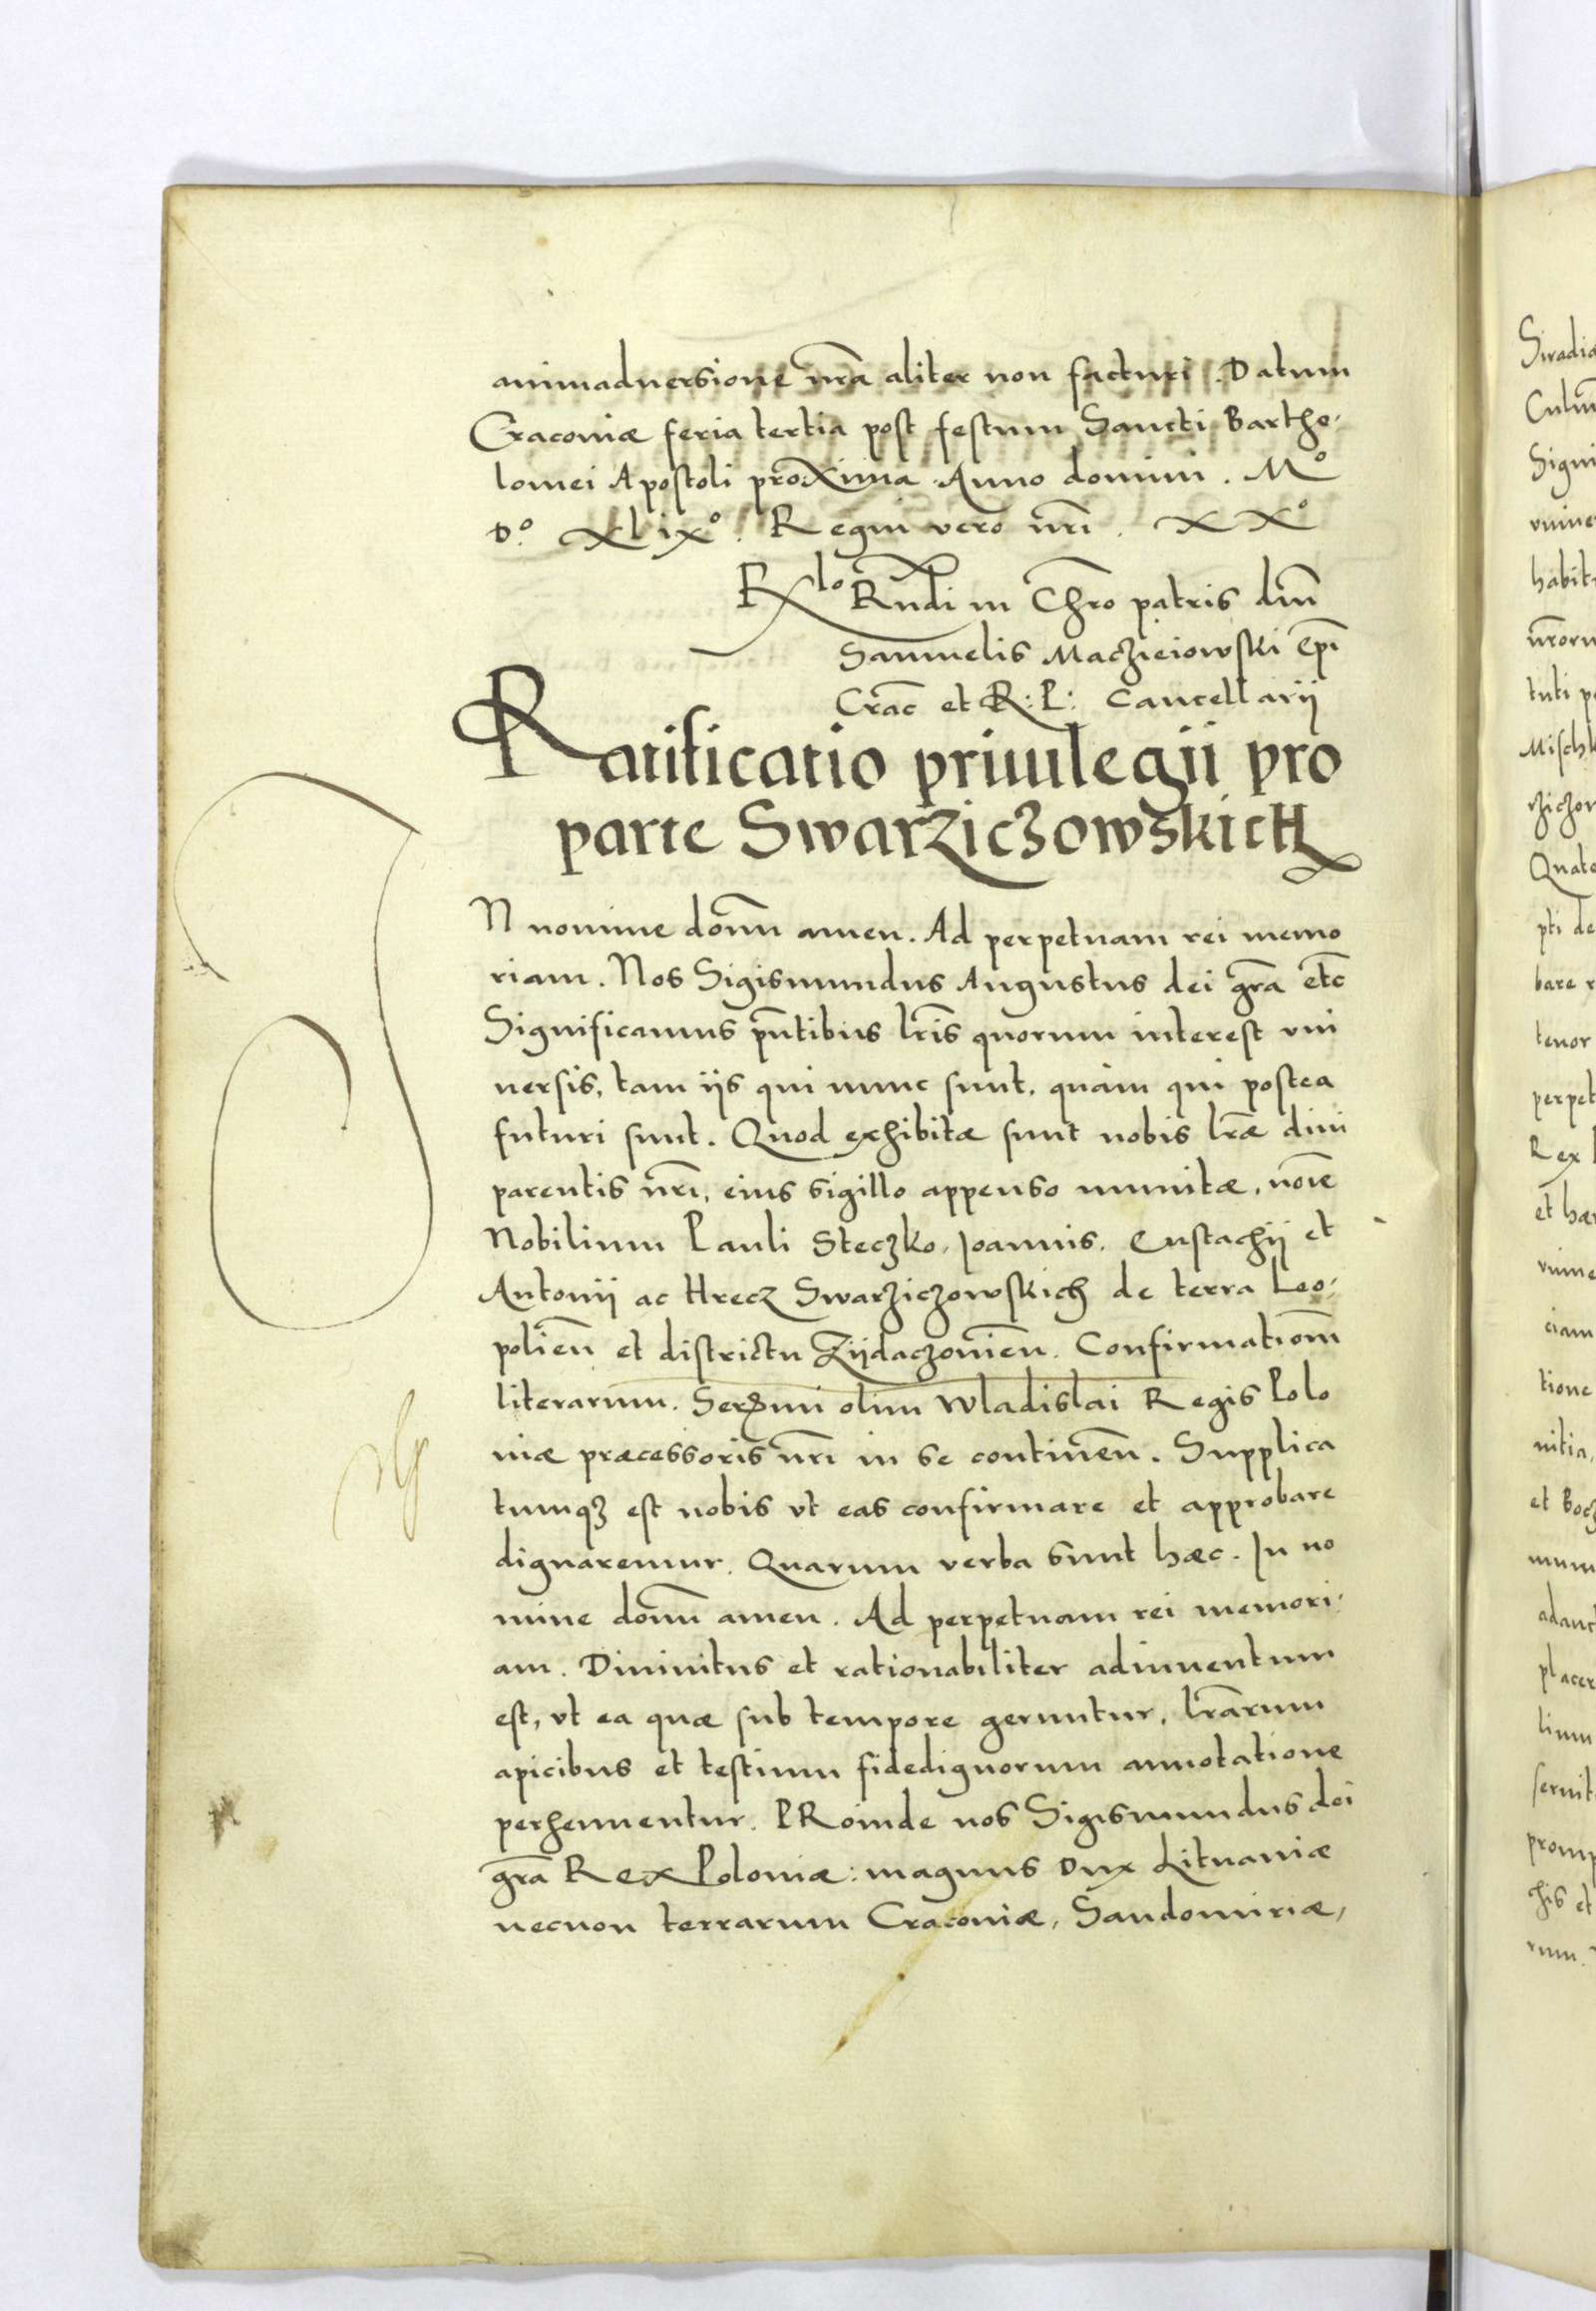 animaduersione nr̃a aliter non facturi. Datum
Cracoviæ feria tertia post festum Sancti Bartho-
lomei Apostoli proxima. Anno domini. Mº
Dº. xlixº. Regni vero nr̃i. XXº
Rlo Rndi in Chr̃o patris dñi
Samuelis Maczieiowski Ep̃i
Crac̃ et R: P: Cancellarij
Ratificatio priuilegij pro
parte Swarziczowskich
IN nomine domĩ amen. Ad perpetuam rei memo
riam. Nos Sigismundus Augustus dei gr̃a etc̃
Significamus pñtibus lr̃is quorum interest vni
uersis, tam ijs qui nunc sunt, quàm qui postea
futuri sunt. Quod exhibitæ sunt nobis lr̃æ diui
parentis nr̃i, eius sigillo appenso munitæ, noĩe
Nobilium Pauli Steczko, Joannis, Eustachij et
Antonij ac Hrecz Swarziczowskich de terra Leo-
polien̄ et districtu Zijdaczouien̄. Confirmationē
literarum. Serẽmi olim Wladislai Regis Polo
niæ præcessoris nr̃i in se continen̄. Supplica
tumqȝ est nobis vt eas confirmare et approbare
dignaremur. Quarum verba sunt hæc. In no
mine domĩ amen. Ad perpetuam rei memori-
am. Diuinitus et rationabiliter adinuentum
est, vt ea quæ sub tempore geruntur, lr̃arum
apicibus et testium fidedignorum annotatione
perhennentur. PRoinde nos Sigismundus dei
gr̃a Rex Poloniæ: magnus Dux Lituaniæ
necnon terrarum Cracoviæ, Sandomiriæ,